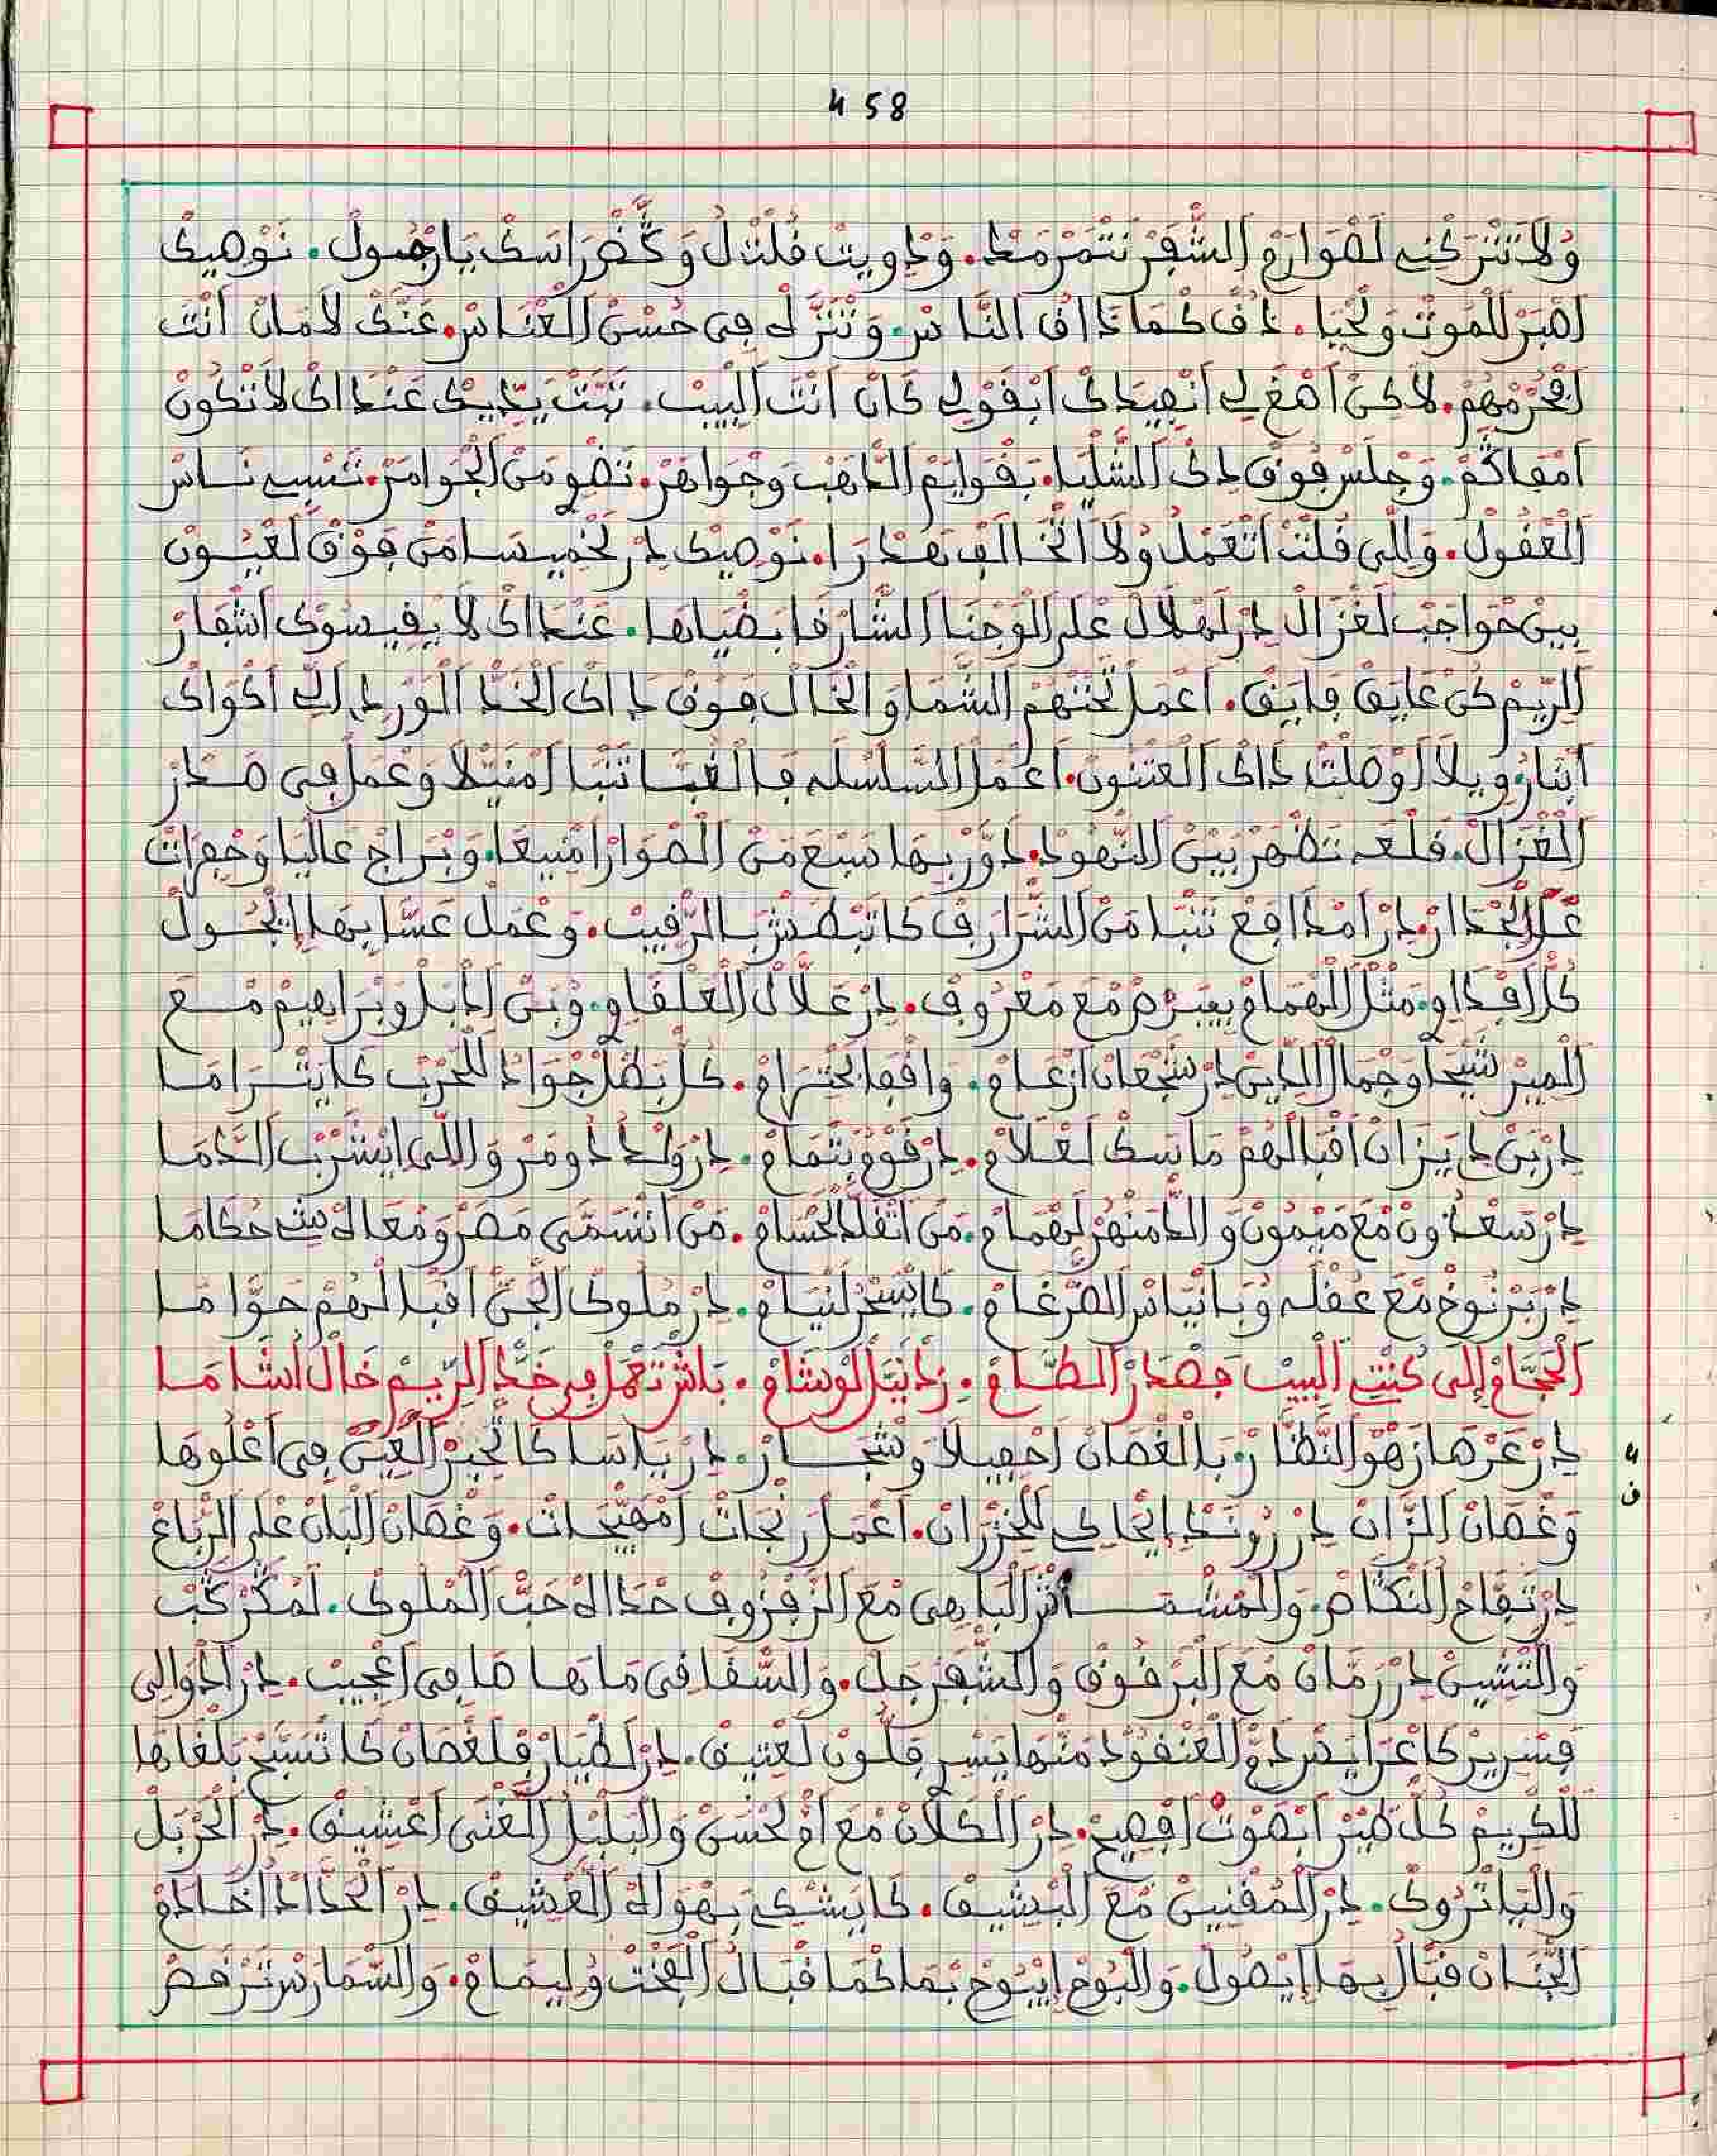 458
وُلاَتَتْرَكْنِي لَصْوَارَمْ الشّْفَرْ نَتْمَرْمَطْ. وَدْوِيتْ قُلْتْ لُ وَخّْضَرْ رَاسَكْ يَا رْصُولْ. نَوْصِيكْ
اَصْبَرْ لَلْمُوتْ وَلَحْيَا. دُقْ كْمَا دَاقْ النَّاسْ. وَتْنَزَّلْ فِي حُسْنْ الْعْنَاسْ. عَنْدَكْ لاَمَانْ اَنْتَ
لاَكِنْ اَصْغَ لِي اَنْصِيدَكْ اَبْقَوْلِي كَانْ اَنْتَ الْبِيبْ. عَنْدَاكْ لاَتْكُونْ
وَجْلَسْ فُوقْ دَكْ الشَّلْيَا. بَقْوَايَمْ الدّْهَبْ وَجْوَاهَرْ. تَضْوِي مَنْ الْجْوَامَرْ. تَسْبِي نَاسْ
الْعْقُولْ. وَاللِّي قُلْتْ اَتْعَمْلُ وُلاَ اتْخَالَفْ بَهْدْرَا. نَوْصِيكْ دِرْ لَخْمِيسَا مَنْ فُوقْ لَعْيُونْ
بِينْ حْوَاجَبْ لَغْزَالْ دِرْ لَهْلاَلْ عْلَى الْوَجْنَا الشَّارْقَا بَضْيَاهَا. عَنْدَاكْ لاَ يْفِيسُوكْ اَشْفَارْ
الرِّيمْ كُنْ عَايَقْ فَايَقْ. اَعْمَلْ تَحْتْهُمْ الشَّمَا وَالْخَالْ فُوقْ دَاكْ الْخَدّْ الْوَرْدِي اَلِي اَكْوَاكْ
اَبْنَارُ وِيلاَ اَوْصَلْتْ دَاكْ الْعَتْنُونْ. اَعْمَلْ السَّلْسْلَه فَالْغْبَبْ تَنْبَا اَمْنَيّْلاَ وَعْمَلْ فِي صْدَرْ
الْغْزَالْ. قَلْعَه تَظْهَرْ بِينْ النّْهُودْ. دَوَّرْ بِهَا سْبَعْ مَنْ الصْوَارْ اَمْنِيعَا. وَبْرَاجْ عَالْيَا وَحْفِرَاتْ
عْلَى الْجْدَارْ. دِرْ اَمْدَافَعْ تَنْبَا مَنْ الشّْرَارَفْ كَاتَبْطَشْ بَالرّْقِيبْ. وَعْمَلْ عَسَّا بِهَا اِيْجُولْ
كُلّْ اَفْدَاوِي. مَثْلْ الْهْمَامْ بِيبَرْصْ مْعَ مَعْرُوفْ. دِرْ عَلاَّلْ الْعَلْفَاوِي. وُبَنْ اَدْبَلْ وَبْرَاهِيمْ مْعَ
الْمِيرْ شِيحَا وَجْمَالْ الدِّينْ دِرْ شَجْعَانْ اَزْعَامْ. وَاقْفَا بَحْتِرَامْ. كُلّْ بَطَلْ جْوَادُ لَلْحَرْبْ كَايَتْرَامَا
دِرْ بَنْ دِي يَزَانْ اَقْبَالْهُمْ مَاسَكْ لَعْلاَمْ. دِرْ قَوْمُ بَتْمَامْ. دِرْ وَلْدْ دُومَرْ وَاللِّي اِيْشْرَبْ الدَّمَا
دِرْ سَعْدُونْ مْعَ مَيْمُونْ وَالدَّمَنْهُرْ لَهْمَامْ. مَنْ اَتْقَلَّدْ لَحْسَامْ. مَنْ اَتْسَمَّى مَصْرْ وُمْعَاهْ بِيتْ حُكَامَا
دِرْ بَرْنُوخْ مْعَ عُقْلَه وُبَانْيَاسْ الضّْرْغَامْ. كَايَسْحَرْ لَنْيَامْ. دِرْ مْلُوكْ الْجَنّْ اَقْبَالْهُمْ حَوَّامَا
اَلْحَجَّامْ اِلَى كُنْتِ الْبِيبْ جَصْدَرْ الطَّامْ. زَدْ اَنْيَلْ الْوْشَامْ. بَاشْ تَعْمَلْ فِي خَدّْ الرِّيمْ خَالْ اُشَامَا
دِرْ عَرْصَا زَهْوْ النّْظَارْ. بَالْغْصَانْ اَحْفِيلاَ وَشْجَارْ. دِرْ يَاسَا كَاتْحَيَّرْ الْعِينْ فِي اَعْلُوهَا
وَغْصَانْ الزَّانْ دِرْ رُونْدْ اِيْحَاكِي لَلْخَزْرَانْ. اَعْمَلْ رَنْجَاتْ اَمْهَيّْجَاتْ. وَغْصَانْ الْبَانْ عْلَى الرّْبَاعْ
دِرْ تَفَّاحْ النَّكَّاصْ. وَالْمَشْمَاشْ الْبَاهِي مْعَ الزَّفْزُوفْ حْدَاهْ حَبّْ الْمْلُوكْ. لَمْكَرْكَبْ
وَالتّْشِينْ دِرْ رَمَّانْ مْعَ الْبَرْقُوقْ وَالسّْفَرْجَلْ. وَالسَّقَّا فِي مَاهَا صَافِي اَعْجِيبْ. دِرْ اَدْوَالِي
فَسْرِيرْ كَاعْرَايَصْ دَوّْ الْعَنْقُودْ مَنْهَا يَسْبِي فَلُّونْ لَعْتِيقْ. دِرْ لَطْيَارْ فَلْغْصَانْ كَاتْسَبَّحْ بَلْغَاهَا
لَلْكْرِيمْ كُلّْ طِيرْ اَبْصَوْتُ اَفْصِيحْ. دِرْ الْكَلاَنْ مْعَ اَمّْ لَحْسَنْ وَالْبَلْبَلْ الْغْنَى اَعْشِيقْ. دِرْ الْحَرْبَلْ
وَالْيَاتْرُوكْ. دِرْ الْمُقْنِينْ مْعَ الْبْشِيقْ. كَايَشْكِي بَهْوَاهْ الْعْشِيقْ. دِرْ الْحْدَّادْ اَخْدَامْ
الْجْنَانْ قْبَالْ بِهَا اِيْصُولْ. وَالْبُوحْ اِيْبُوحْ بَمَا كْمَا قْبَالُ الْفَخْتْ وُلِيمَامْ. وَالسّْمَارَسْ تَرْقَصْ